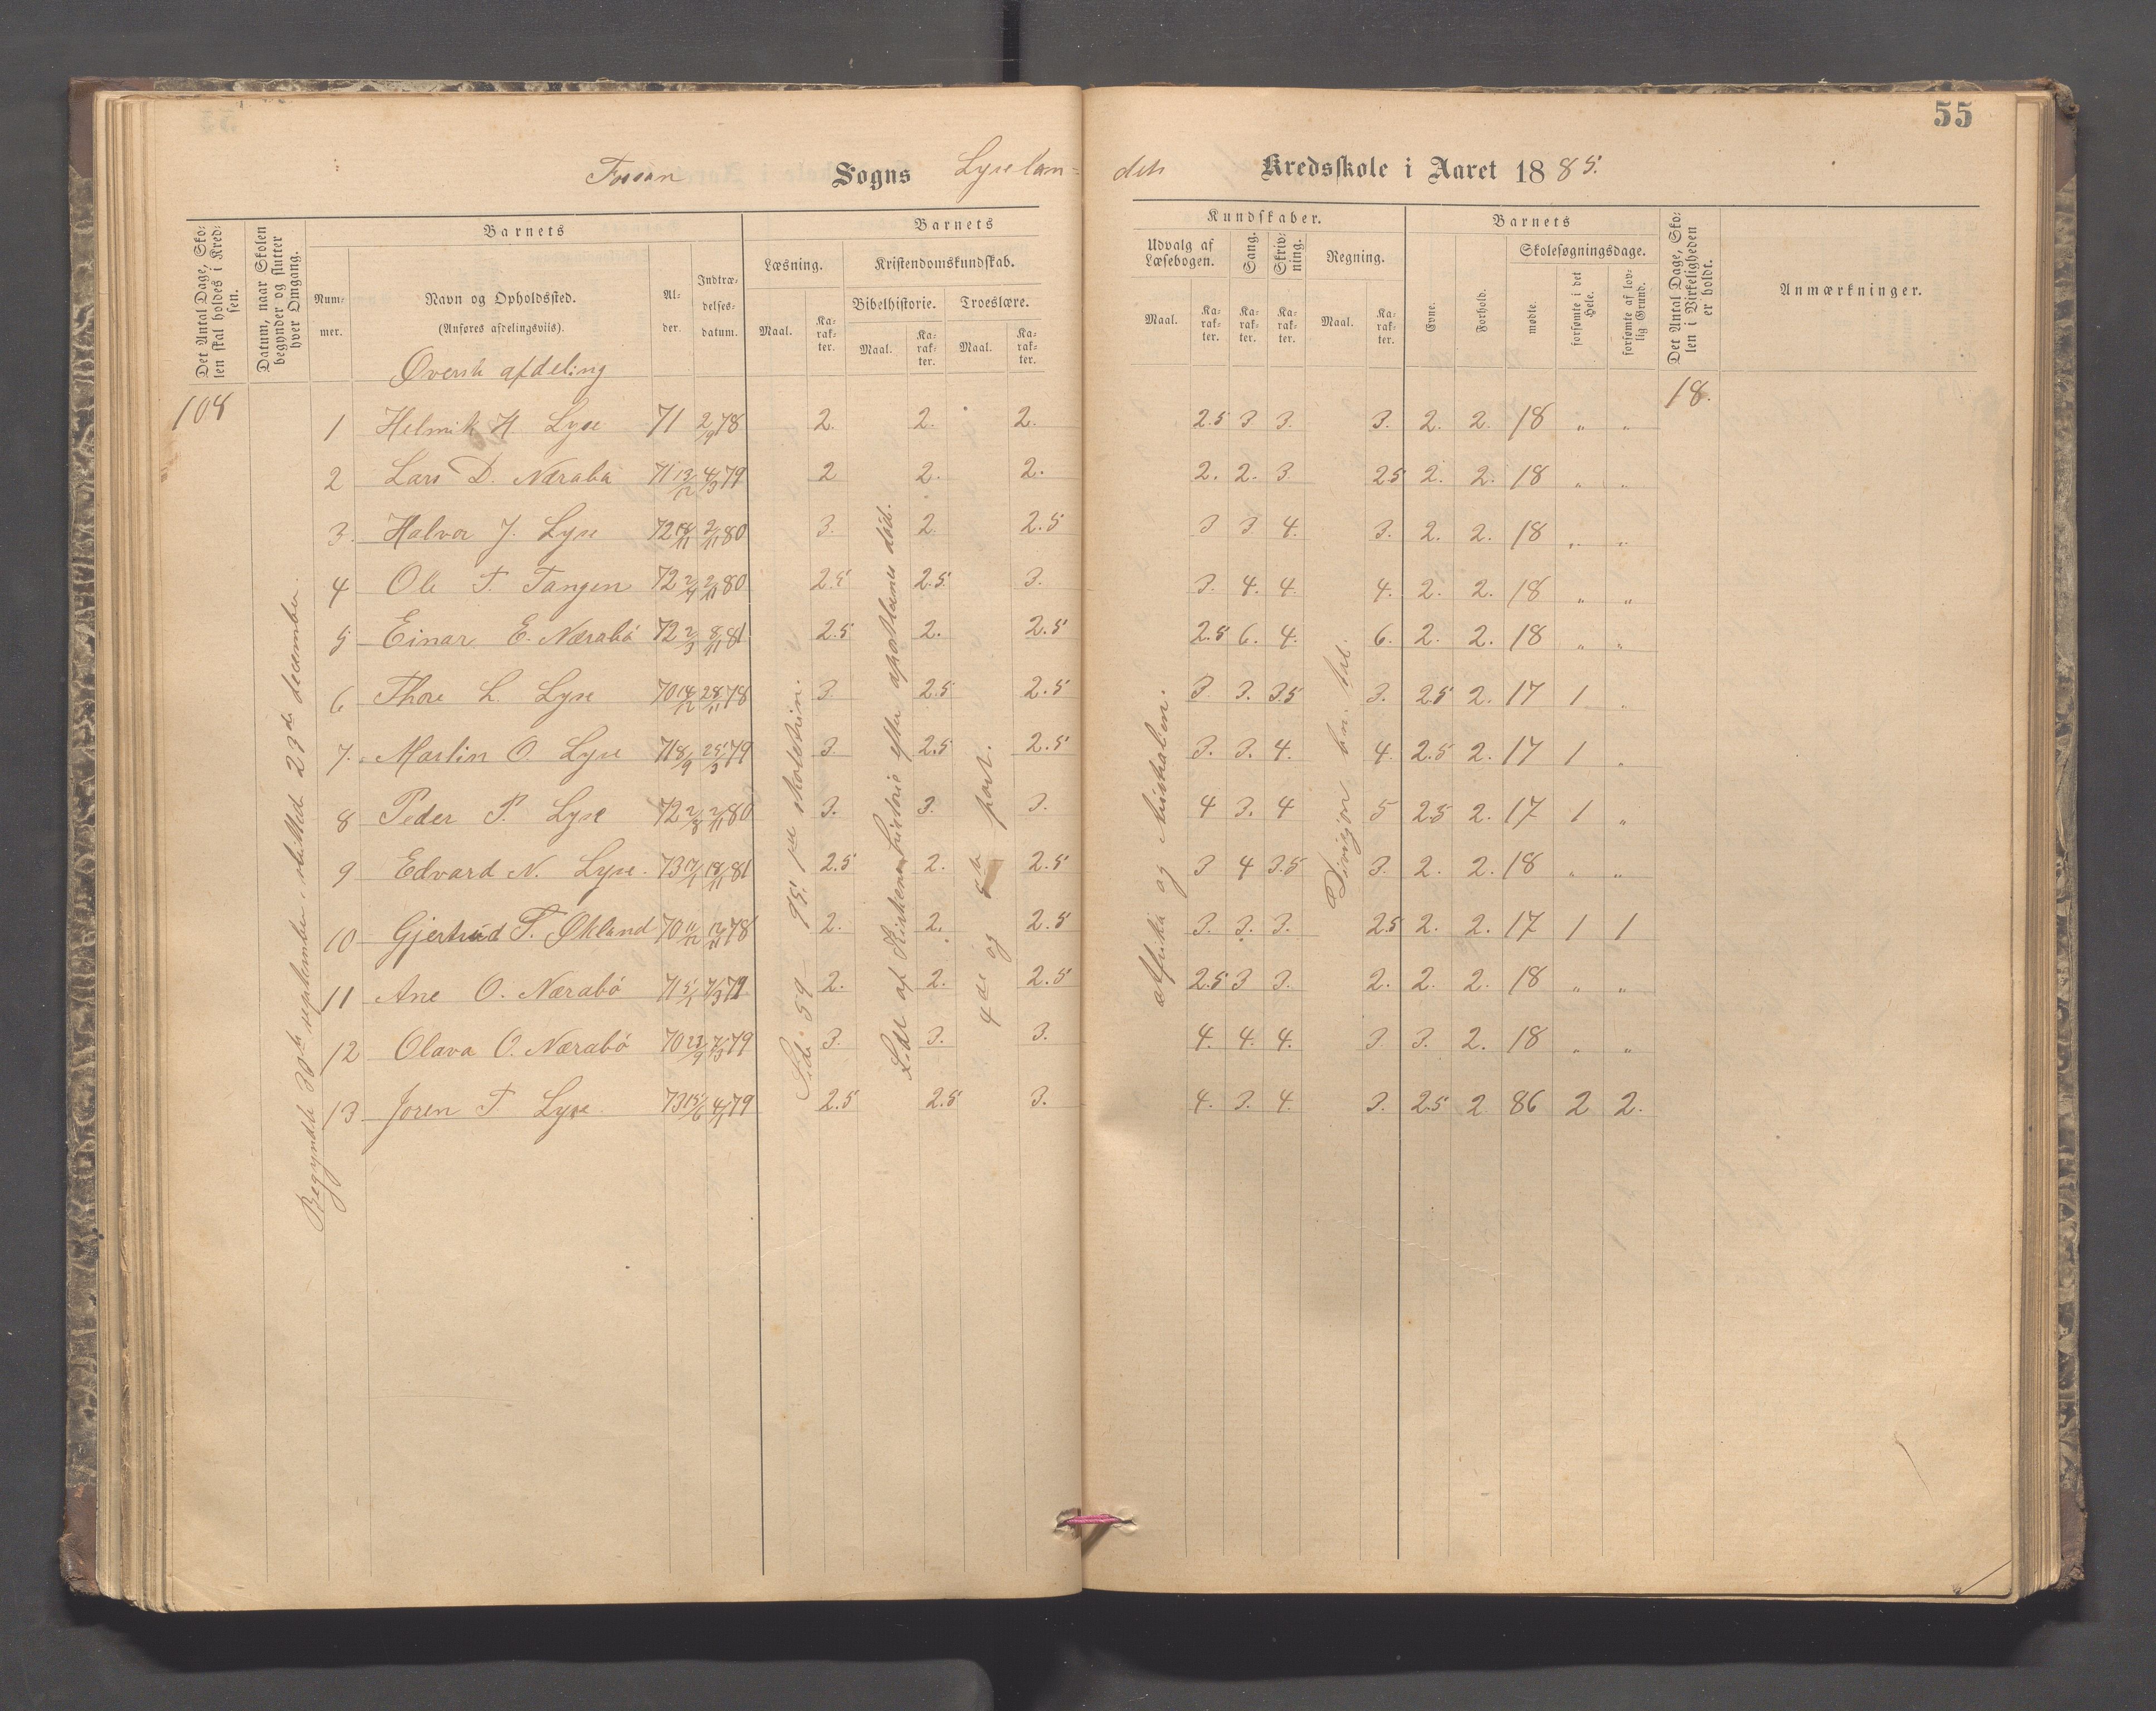 55
Fossan Sogns Lyselan=
dets Kredsskole i Aaret 1885.
Det Antal Dage, Skolen skal holdes i Kredsen.
Datum, naar Skolen begynder og slutter hver Omgang.
Barnets
Nummer.
Navn og Opholdssted.
(Anføres afdelingsvils).
Alder.
Indtrædelsesdatum.
Barnets
Læsning.
Maal.
Karakter.
Kristendomskundskab.
Bibelhistorie.
Maal.
Karakter.
Troeslære.
Maal.
Karakter.
Kundskaber.
Udvalg af Læsebogen.
Maal.
Karakter.
Sang.
Karakter.
Skrivning.
Karakter.
Regning.
Maal.
Karakter.
Barnets
Evne.
Forhold.
Skolesøgningsdage.
mødte.
forsømte i det Hele.
forsømte af lovlig Grund.
Det Antal Dage, Skolen i Virkeligheden er holdt.
Anmærkninger.
Øverste afdeling
108
18.
1 Helmik H. Lyse 71 2/9 78 2. 2. 2. 2.5 3 3. 3. 2. 2. 18 " "
2 Lars D. Nærabø 71 13/12 4/3 79 2 2. 2. 2. 2. 3. 2.5 2. 2. 18 " "
3. Halvor J. Lyse 72 18/11 2/11 80 3. 2. 2.5 3 3 4. 3. 2. 2. 18 " "
4 Ole T. Tangen 72 2/4 2/11 80 2.5 2.5 3. 3. 4. 4. 4. 2. 2. 18 " "
5 Einar E. Nærabø 72 2/3 8/11 81 2.5 2. 2.5 2.5 6. 4. 6. 2. 2. 18 " "
6 Thore L. Lyse 70 14/12 28/11 78 3 2.5 2.5 3 3. 3.5 3. 2.5 2. 17 1 "
7. Martin O. Lyse 71 8/9 25/3 79 3. 2.5 2.5 3. 3. 4. 4. 2.5 2. 17 1 "
8 Peder P. Lyse 72 2/8 2/11 80 3. 3. 3. 4 3. 4 5 2.5 2. 17 1 "
9 Edvard N. Lyse. 73 17/1 18/11 81 2.5 2. 2.5 3 4 3.5 3. 2. 2. 18 " "
10 Gjertrud T. Økland 70 11/12 12/11 78 2. 2. 2.5 3. 3. 3. 2.5 2. 2. 17 1 1
11 Ane O. Nærabø 71 5/1 7/3 79 2. 2. 2.5 2.5 3 3. 2. 2. 2. 18 " "
12 Olava O. Nærabø 70 23/9 7/3 79 3. 3. 3. 4. 4. 4. 3 3. 2. 18 " "
13. Joren T Lyse. 73 15/6 4/1 79 2.5 2.5 3. 4. 3. 4. 3. 2.5 2 86 2 2.
Begyndte 30te september, sluttet 23de december.
Side 59 – 95 pr skoletrin.
Lidt af Kirkens historie efter apostlenes død.
4de og 5te part.
Afrika og Australien.
Divisjon